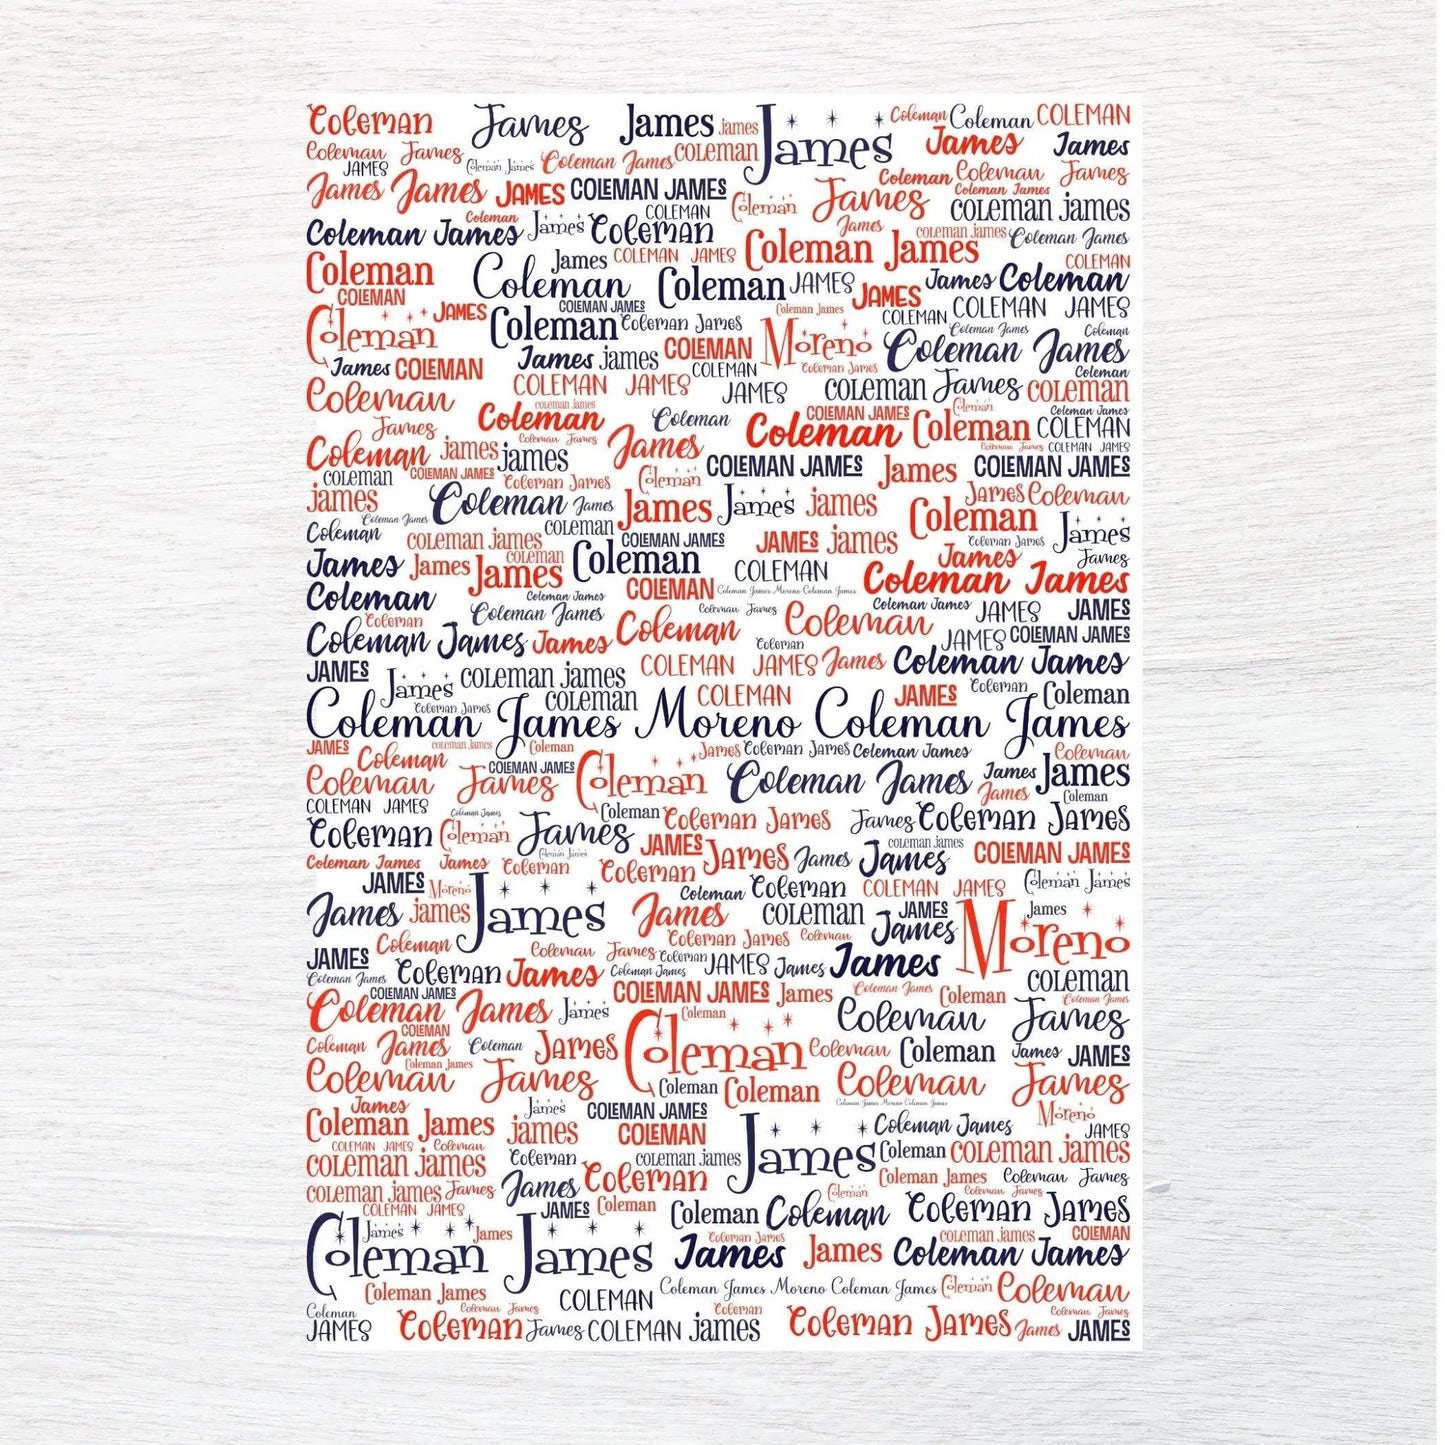 Coleman James James james James Coleman Coleman COLEMAN
Coleman James Coleman James Coleman James coleman James James
JAMES Coleman Coleman James
James James JAMES COLEMAN JAMES Coleman James Coleman James coleman james
Coleman COLEMAN
Coleman James James Coleman James coleman james Coleman James
Coleman James Coleman James COLEMAN JAMES Coleman James COLEMAN
Coleman Coleman JAMES James Coleman
COLEMAN COLEMAN JAMES JAMES COLEMAN JAMES
JAMES Coleman James COLEMAN
Coleman Coleman Coleman James Moreno Coleman James Coleman
James COLEMAN James james COLEMAN COLEMAN Coleman James Coleman James Coleman
Coleman COLEMAN JAMES JAMES coleman James coleman
coleman james COLEMAN JAMES Coleman Coleman James
James Coleman Coleman Coleman Coleman COLEMAN
Coleman james james Coleman James James Coleman James COLEMAN JAMES
coleman COLEMAN JAMES Coleman James Coleman COLEMAN JAMES James COLEMAN JAMES
james Coleman James James James james James Coleman
Coleman James coleman Coleman
Coleman coleman james COLEMAN JAMES JAMES james Coleman James James
James James James coleman Coleman COLEMAN James James
Coleman Coleman James COLEMAN Coleman James Moreno Coleman James Coleman James
Coleman Coleman James Coleman James Coleman Coleman James JAMES JAMES
Coleman James James Coleman Coleman JAMES COLEMAN JAMES
JAMES coleman james COLEMAN JAMES James Coleman James
James coleman COLEMAN JAMES Coleman Coleman
Coleman James
Coleman James Moreno Coleman James
JAMES coleman james Coleman James Coleman James Coleman James Coleman
Coleman COLEMAN JAMES Coleman Coleman James James James
Coleman James James Coleman
COLEMAN JAMES Coleman James Coleman
Coleman Coleman James Coleman James James Coleman James
JAMES James coleman james
Coleman James James Coleman James Coleman James James COLEMAN JAMES
Coleman
JAMES Moreno James Coleman Coleman COLEMAN JAMES Coleman James
James james James coleman JAMES James Moreno
Coleman Coleman James Coleman James
JAMES Coleman James Coleman JAMES James James
Coleman James Coleman James Coleman James coleman
COLEMAN JAMES COLEMAN JAMES James Coleman James Coleman Coleman James
Coleman James James Coleman Coleman James
COLEMAN Coleman
Coleman James Coleman James Coleman Coleman James JAMES
Coleman James
Coleman James Coleman Coleman Coleman James
James James COLEMAN JAMES Coleman James Moreno Coleman James Moreno
Coleman James james COLEMAN James Coleman James JAMES
COLEMAN JAMES Coleman
coleman james Coleman coleman james Coleman coleman james
Coleman James Coleman James
coleman james James James Coleman Coleman Coleman James
COLEMAN JAMES JAMES Coleman Coleman Coleman Coleman James
James James Coleman James coleman james COLEMAN
Coleman James James James Coleman James
Coleman James Coleman James Moreno Coleman James Coleman Coleman
Coleman Coleman James COLEMAN Coleman Coleman James
JAMES Coleman James COLEMAN james Coleman James James JAMES